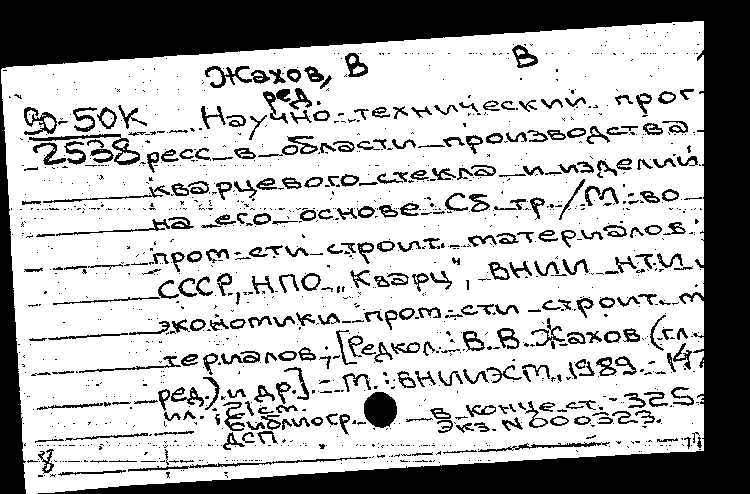 Жахов, В
В
ред.
Научно-технический прог-
2538 ресс в области производства
кварцевого стекла и изделий
на его основе: Сб. тр. / М-во
пром-сти строит. материалов
СССР, НПО „Кварц“, ВНИИ НТИ и
экономики пром-сти строит. м
териалов; [Редкол.: В.В. Жахов (гл.
ред.) и др.]. - М.: ВНИИЭСМ, 1989. - 147
ил.; 21 см.
Библиогр. в конце ст. - 325
ДСП. Экз. N 000323.
8